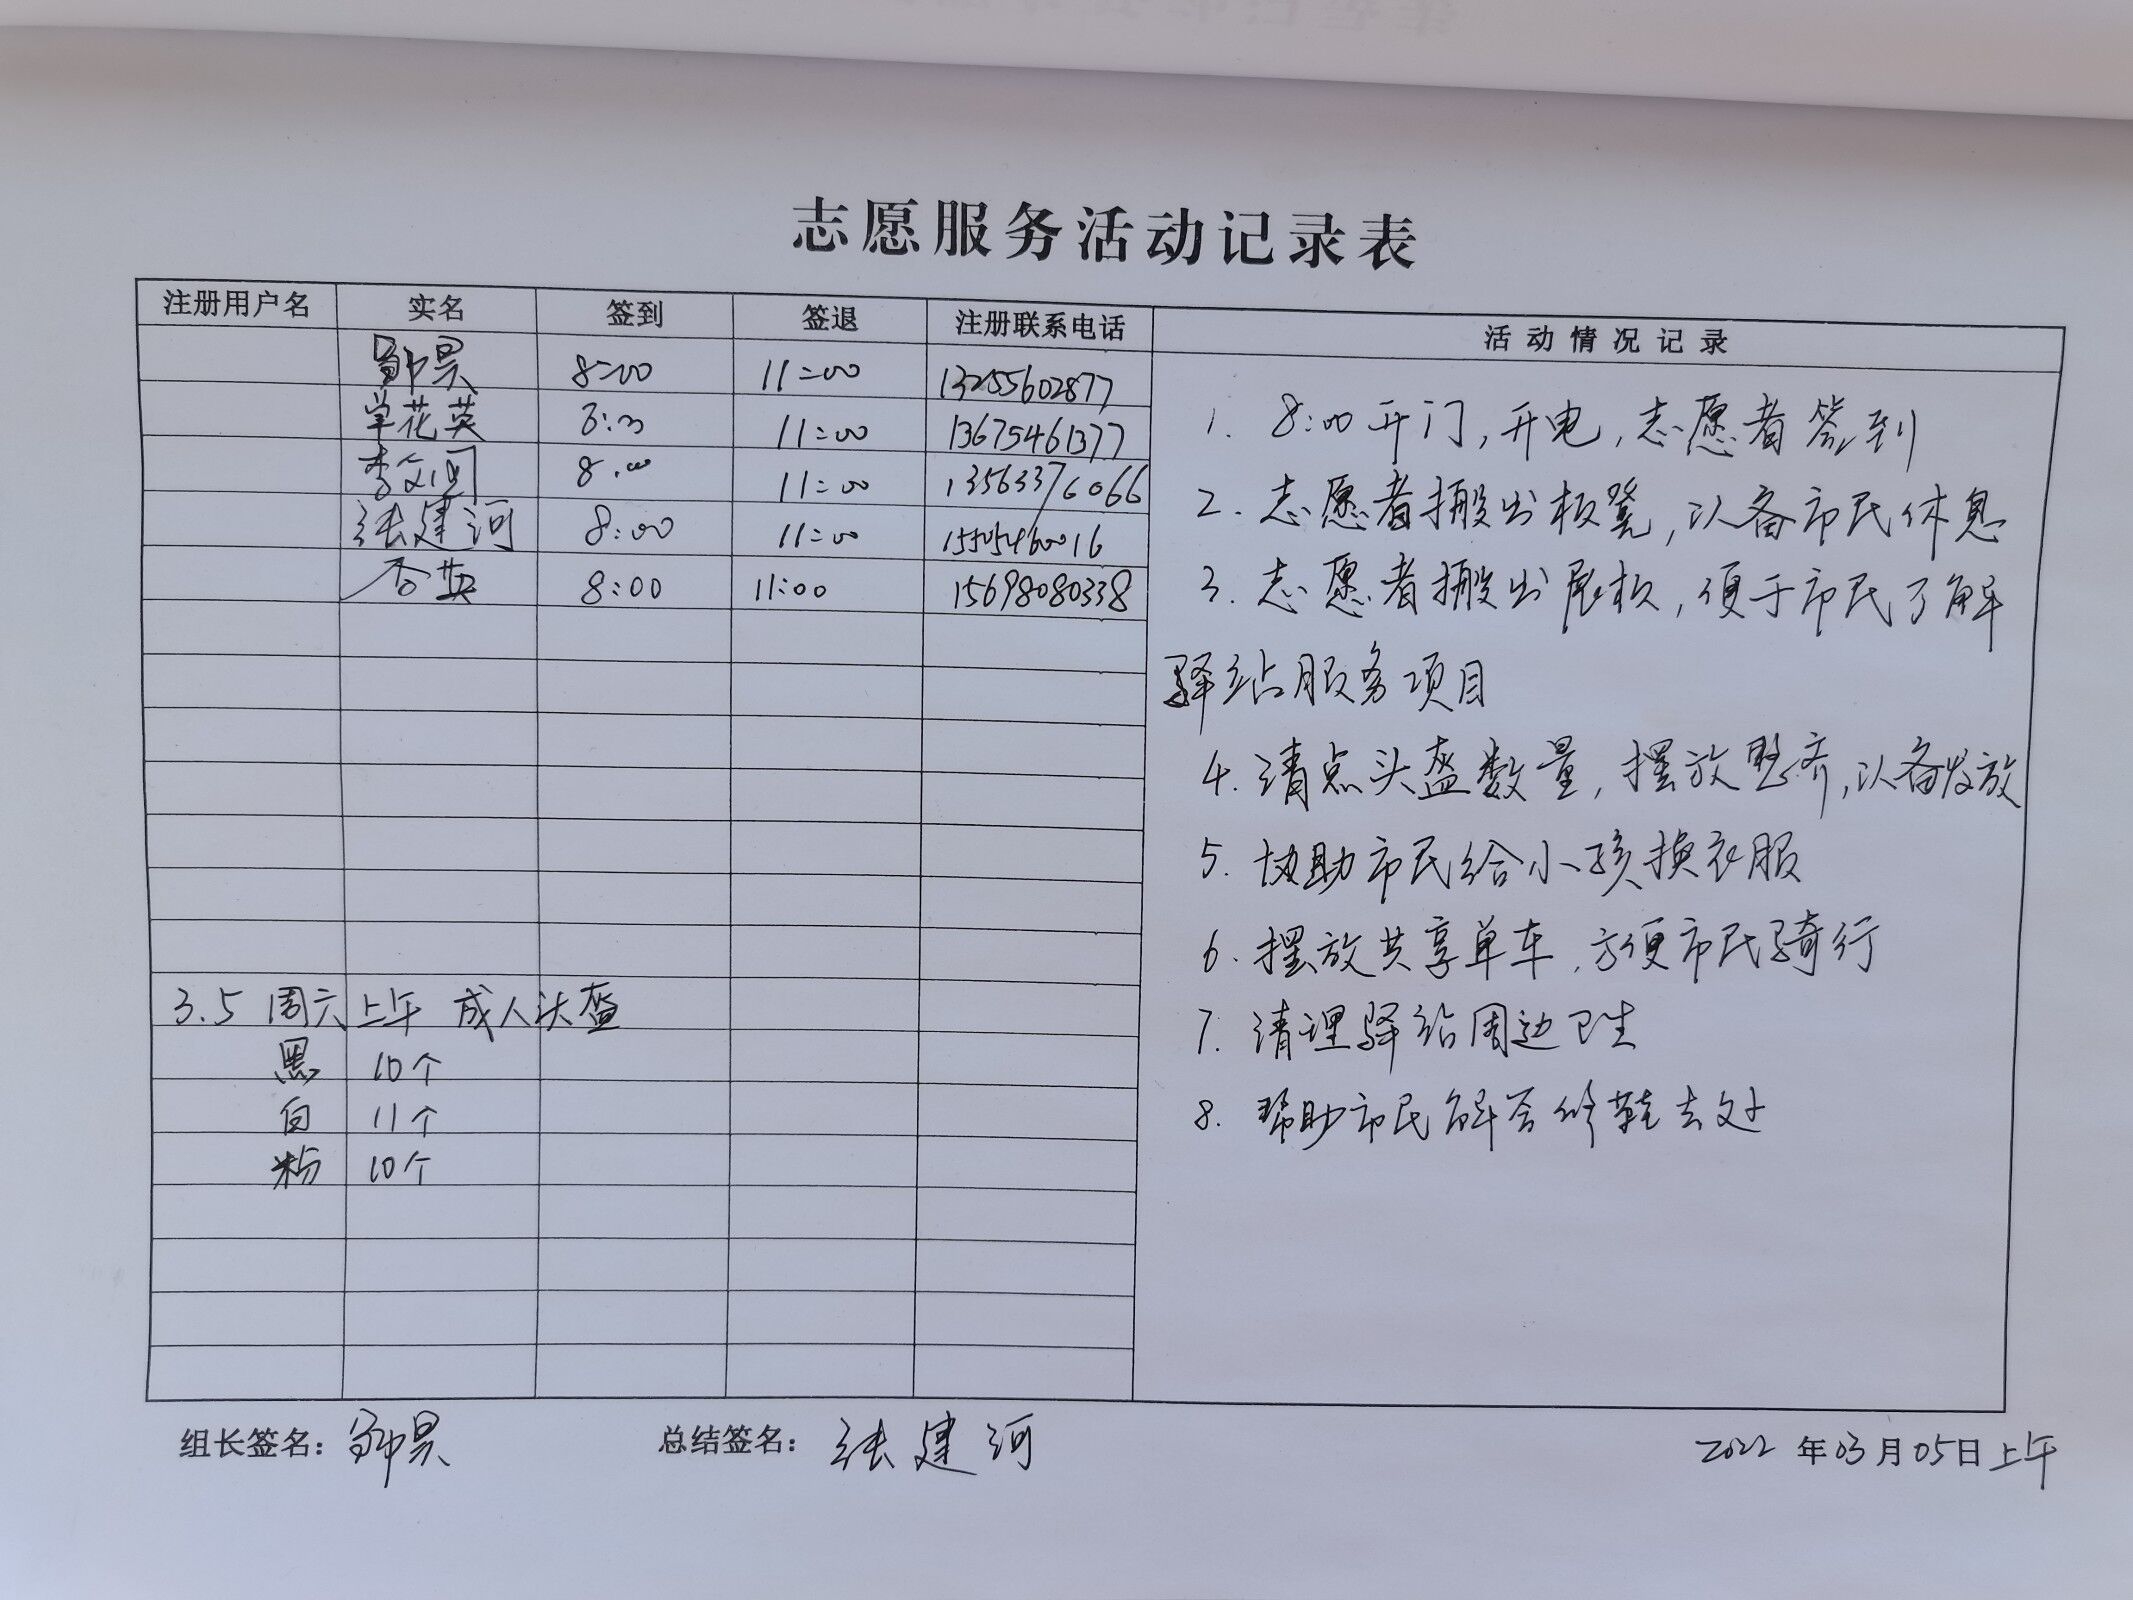 志愿服务活动记录表
注册用户名 实名 签到 签退 注册联系电话 活动情况记录
昊 8:00 11:00 13255602877
单花英 8:00 11:00 13675461377
李 8:00 11:00 13563376066
法建河 8:00 11:00 15505460016
杏英 8:00 11:00 15698080338
3.5 周六上午 成人头盔
黑 10个
白 11个
粉 10个
1. 8:00开门,开电,志愿者签到
2. 志愿者搬出板凳,以备市民休息
3. 志愿者搬出展板,便于市民了解
驿站服务项目
4. 清点头盔数量,摆放整齐,以备发放
5. 协助市民给小孩换衣服
6. 摆放共享单车,方便市民骑行
7. 清理驿站周边卫生
8. 帮助市民解答修鞋去处
组长签名: 昊 总结签名: 法建河 2022年03月05日上午